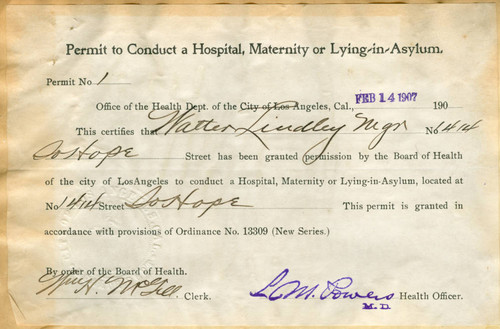 Permit to Conduct a Hospital, Maternity or Lying-in-Asylum.
Permit No 1
Office of the Health Dept. of the City of Los Angeles, Cal., FEB 14 1907 190
This certifies that Walter Lindley Mgr No 1414
So Hope Street has been granted permission by the Board of Health
of the city of LosAngeles to conduct a Hospital, Maternity or Lying-in-Asylum, located at
No 1414 Street So Hope This permit is granted in
accordance with provisions of Ordinance No. 13309 (New Series.)
By order of the Board of Health.
Wm H. McGill Clerk. L. M. Powers Health Officer.
M.D.